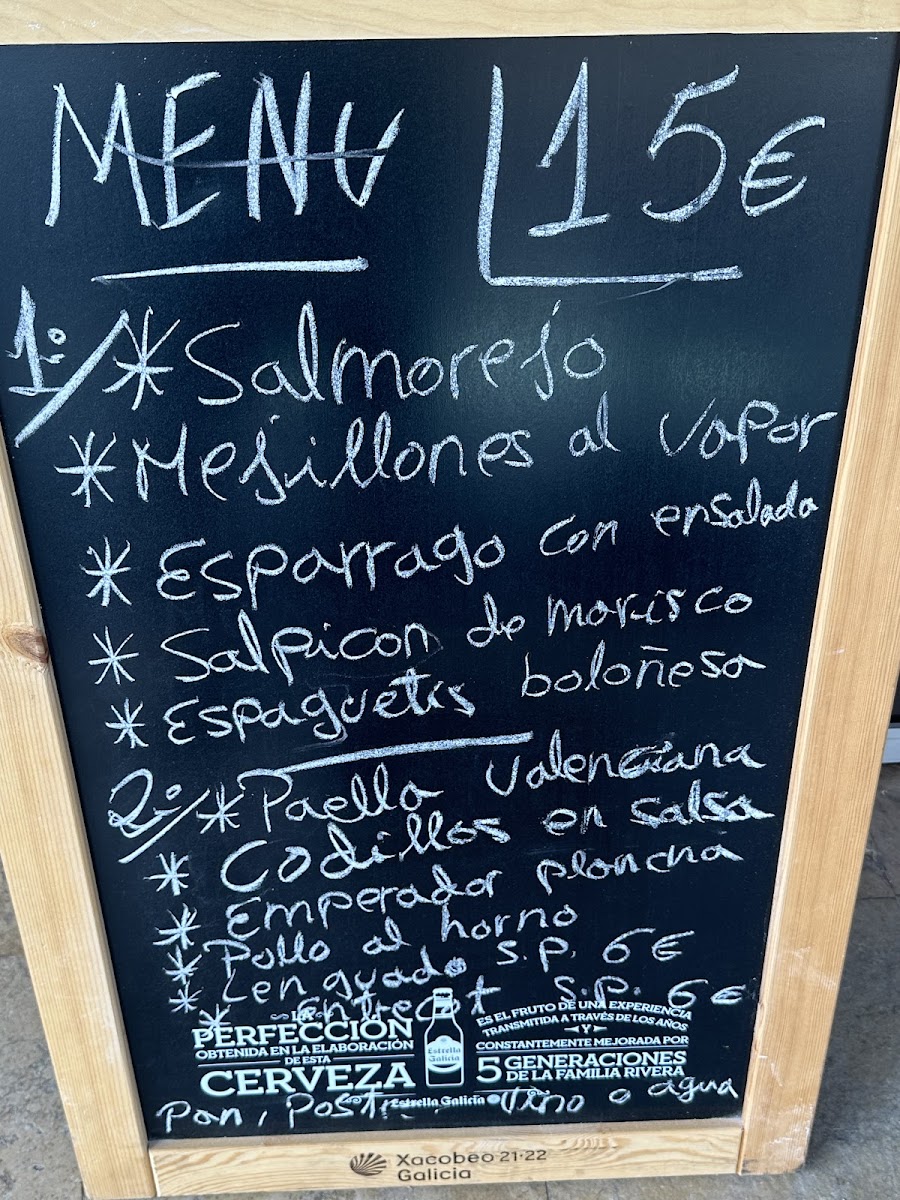 MENU 15€
1º/ * Salmorejo
* Mejillones al vapor
* Esparrago con ensalada
* Salpicon de marisco
* Espaguetis boloñesa
2º/ * Paella Valenciana
* Codillos en salsa
* Emperador plancha
* Pollo al horno
* Lenguado S.P. 6€
* Entrecot S.P. 6€
LA
PERFECCIÓN
OBTENIDA EN LA ELABORACIÓN
DE ESTA
CERVEZA
Estrella
Galicia
ES EL FRUTO DE UNA EXPERIENCIA
TRANSMITIDA A TRAVÉS DE LOS AÑOS
Y
CONSTANTEMENTE MEJORADA POR
5 GENERACIONES
DE LA FAMILIA RIVERA
Estrella Galicia
Pan, Vino o agua
Xacobeo 21·22
Galicia